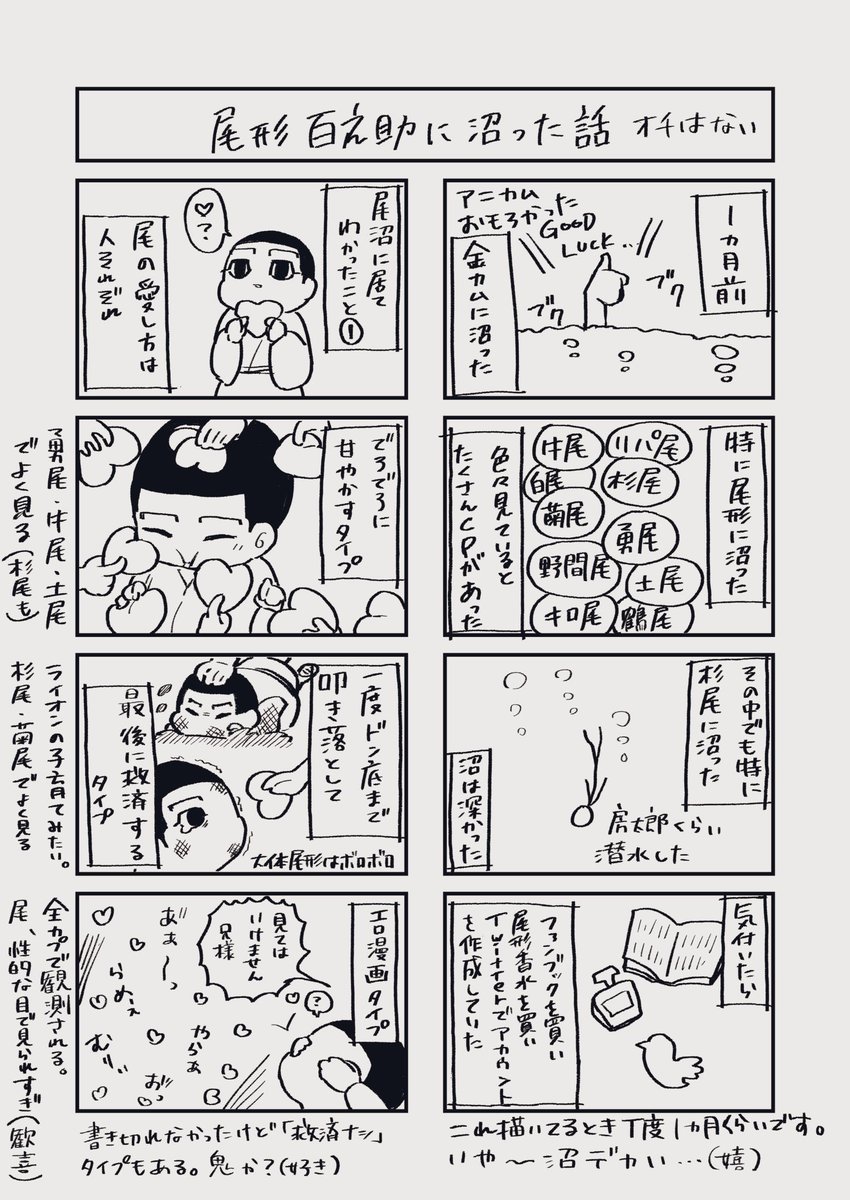 尾形百之助に沼った話 オチはない
1ヵ月前
アニカム
おもろかった
GOOD
LUCK…
ブク
ブク
金カムに沼った
特に尾形に沼った
リパ尾
牛尾
杉尾
白尾
菊尾
勇尾
野間尾
土尾
キロ尾
鶴尾
色々見ていると
たくさんCPがあった
その中でも特に
杉尾に沼った
房太郎くらい
潜水した
沼は深かった
気付いたら
ファンブックを買い
尾形香水を買い
Twitterでアカウント
を作成していた
これ描いてるとき丁度1カ月くらいです。
いや〜沼デカい…(嬉)
尾沼に居て
わかったこと①
♡?
尾の愛し方は
人それぞれ
でろでろに
甘やかすタイプ
勇尾・牛尾・土尾
でよく見る(杉尾も)
一度ドン底まで
叩き落として
最後に救済する
タイプ
大体尾形はボロボロ
ライオンの子育てみたい。
杉尾・菊尾でよく見る
エロ漫画タイプ
?
見ては
いけません
兄様
あ゛ぁ〜っ
らめぇ
やらぁ
むり゛
お゛っ
全カプで観測される。
尾、性的な目で見られすぎ(歓喜)
書き切れなかったけど「救済ナシ」
タイプもある。鬼か?(好き)